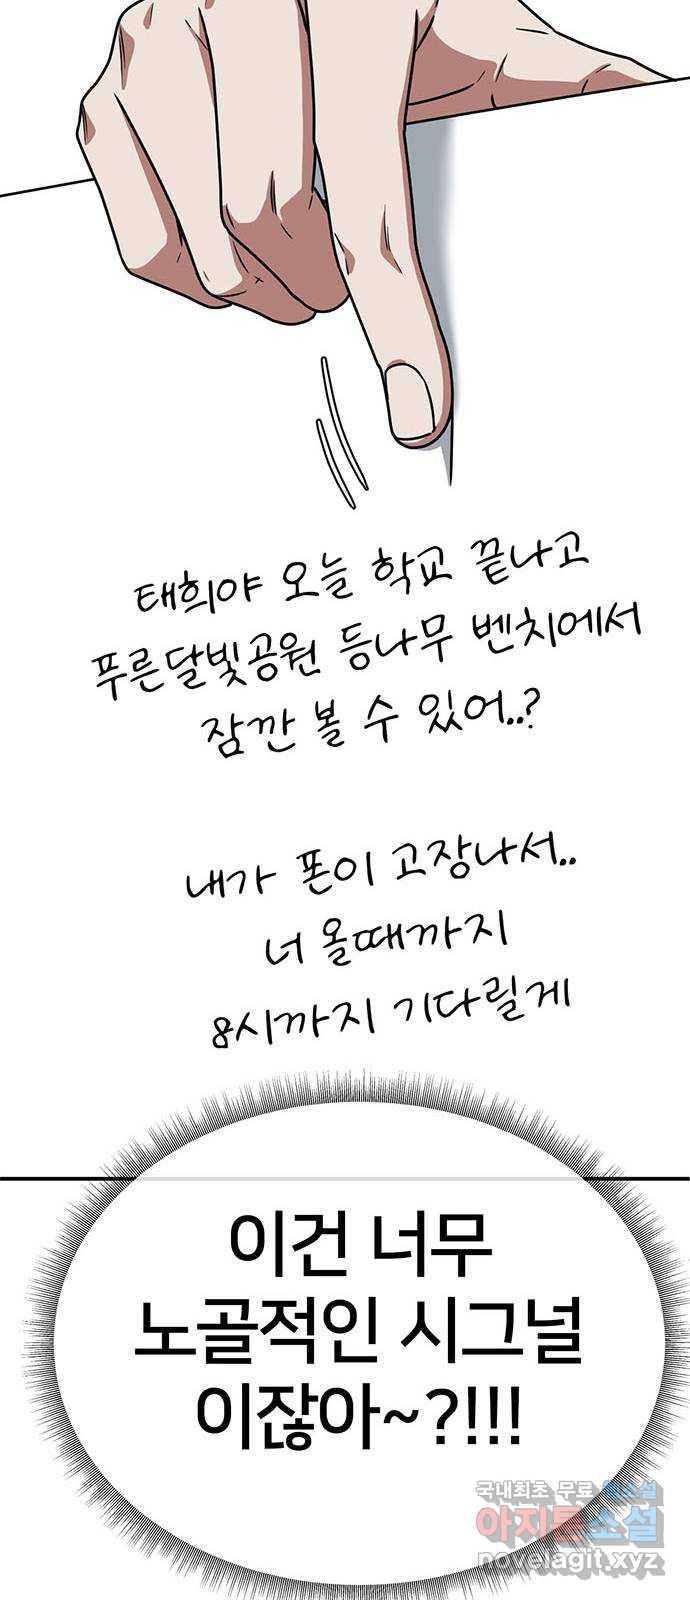 태희야 오늘 학교 끝나고
푸른달빛공원 등나무 벤치에서
잠깐 볼 수 있어..?
내가 폰이 고장나서..
너 올때까지
8시까지 기다릴게
이건 너무
노골적인 시그널
이잖아~?!!!
국내최초 무료 웹소설
아지툰소설
novelagit.xyz